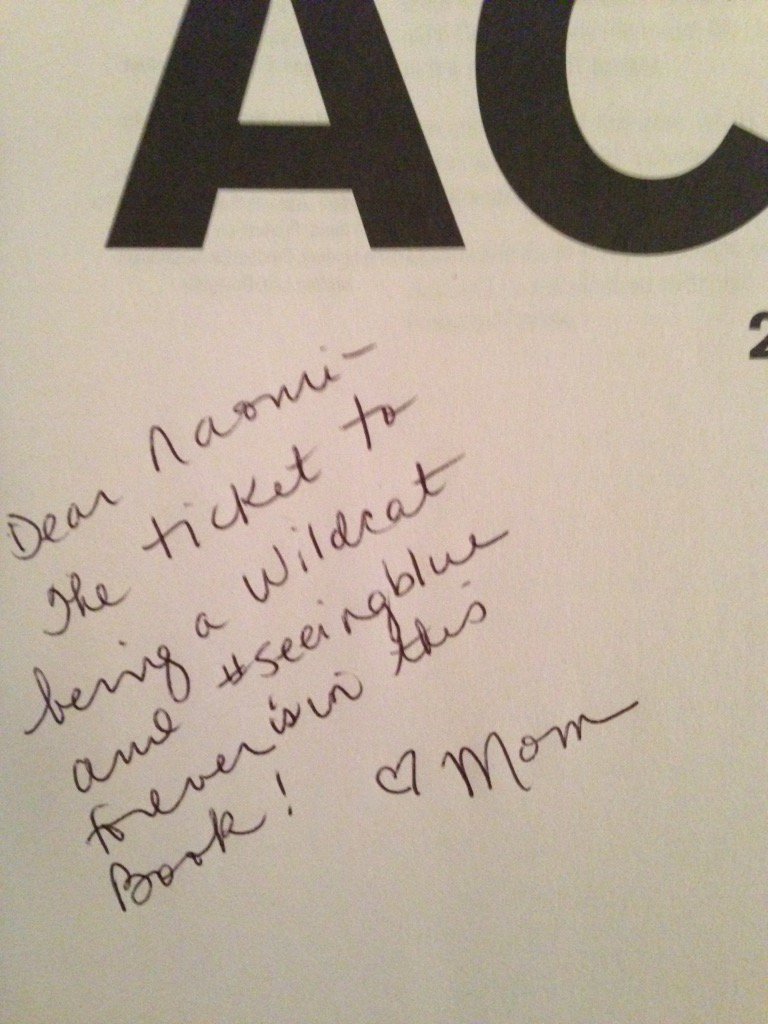 AC
2
Dear Naomi -
The ticket to
being a Wildcat
and #seeingblue
forever is in this
Book! ♡ Mom